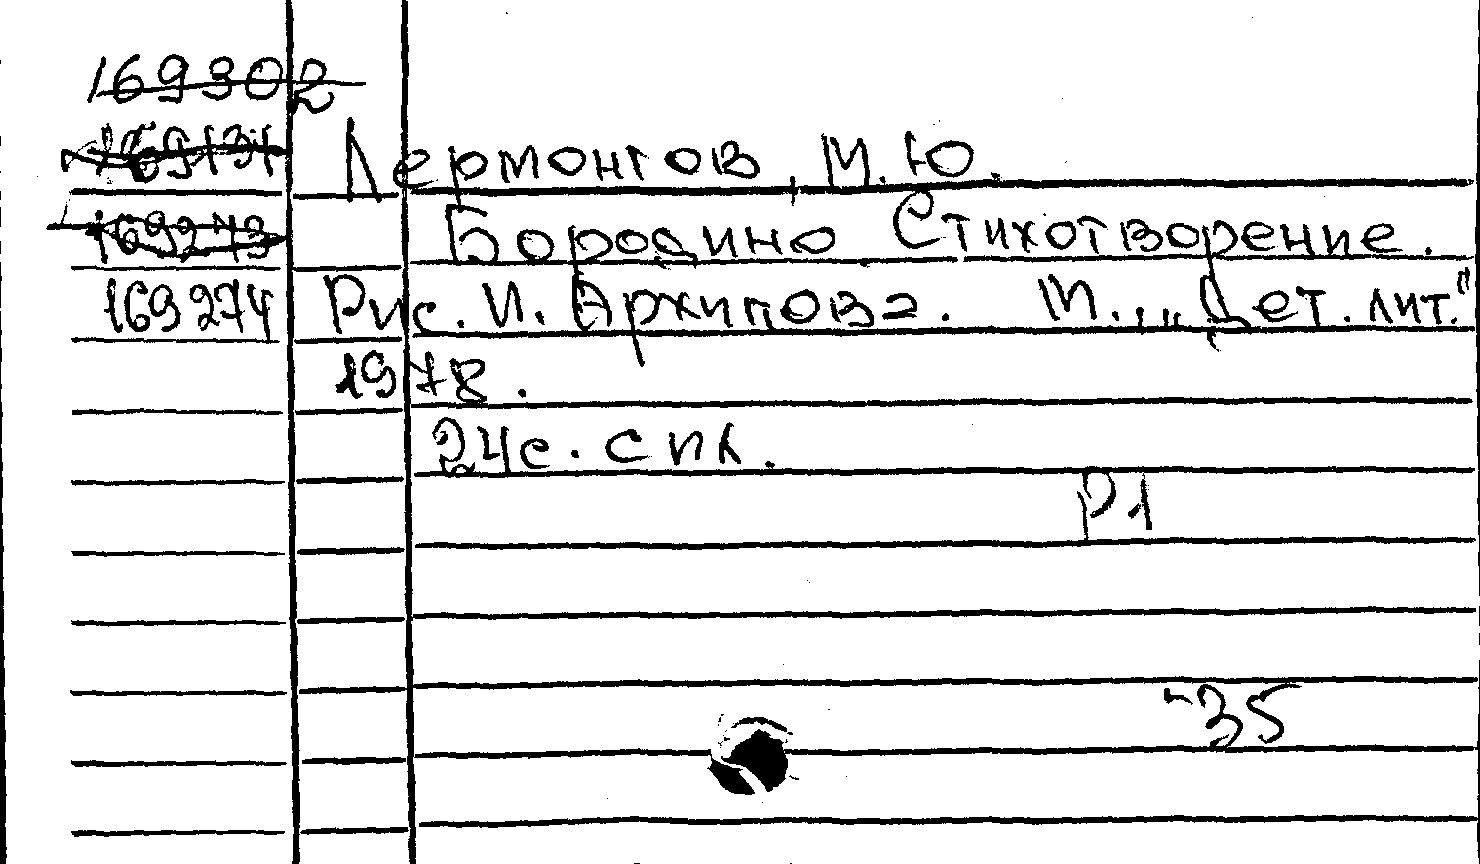 169302
169131 Лермонтов, М.Ю.
169273 Бородино. Стихотворение.
169274 Рис. И. Архипова. М., „Дет. лит."
1978.
24с. с ил.
Р1
-35